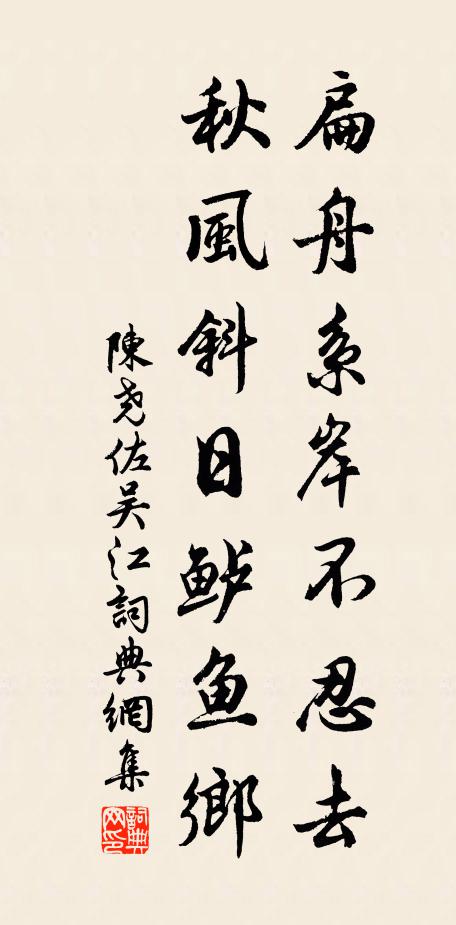 扁舟系岸不忍去
秋風斜日鲈鱼鄉
陳尧佐吴江詞典網集
詞典網印